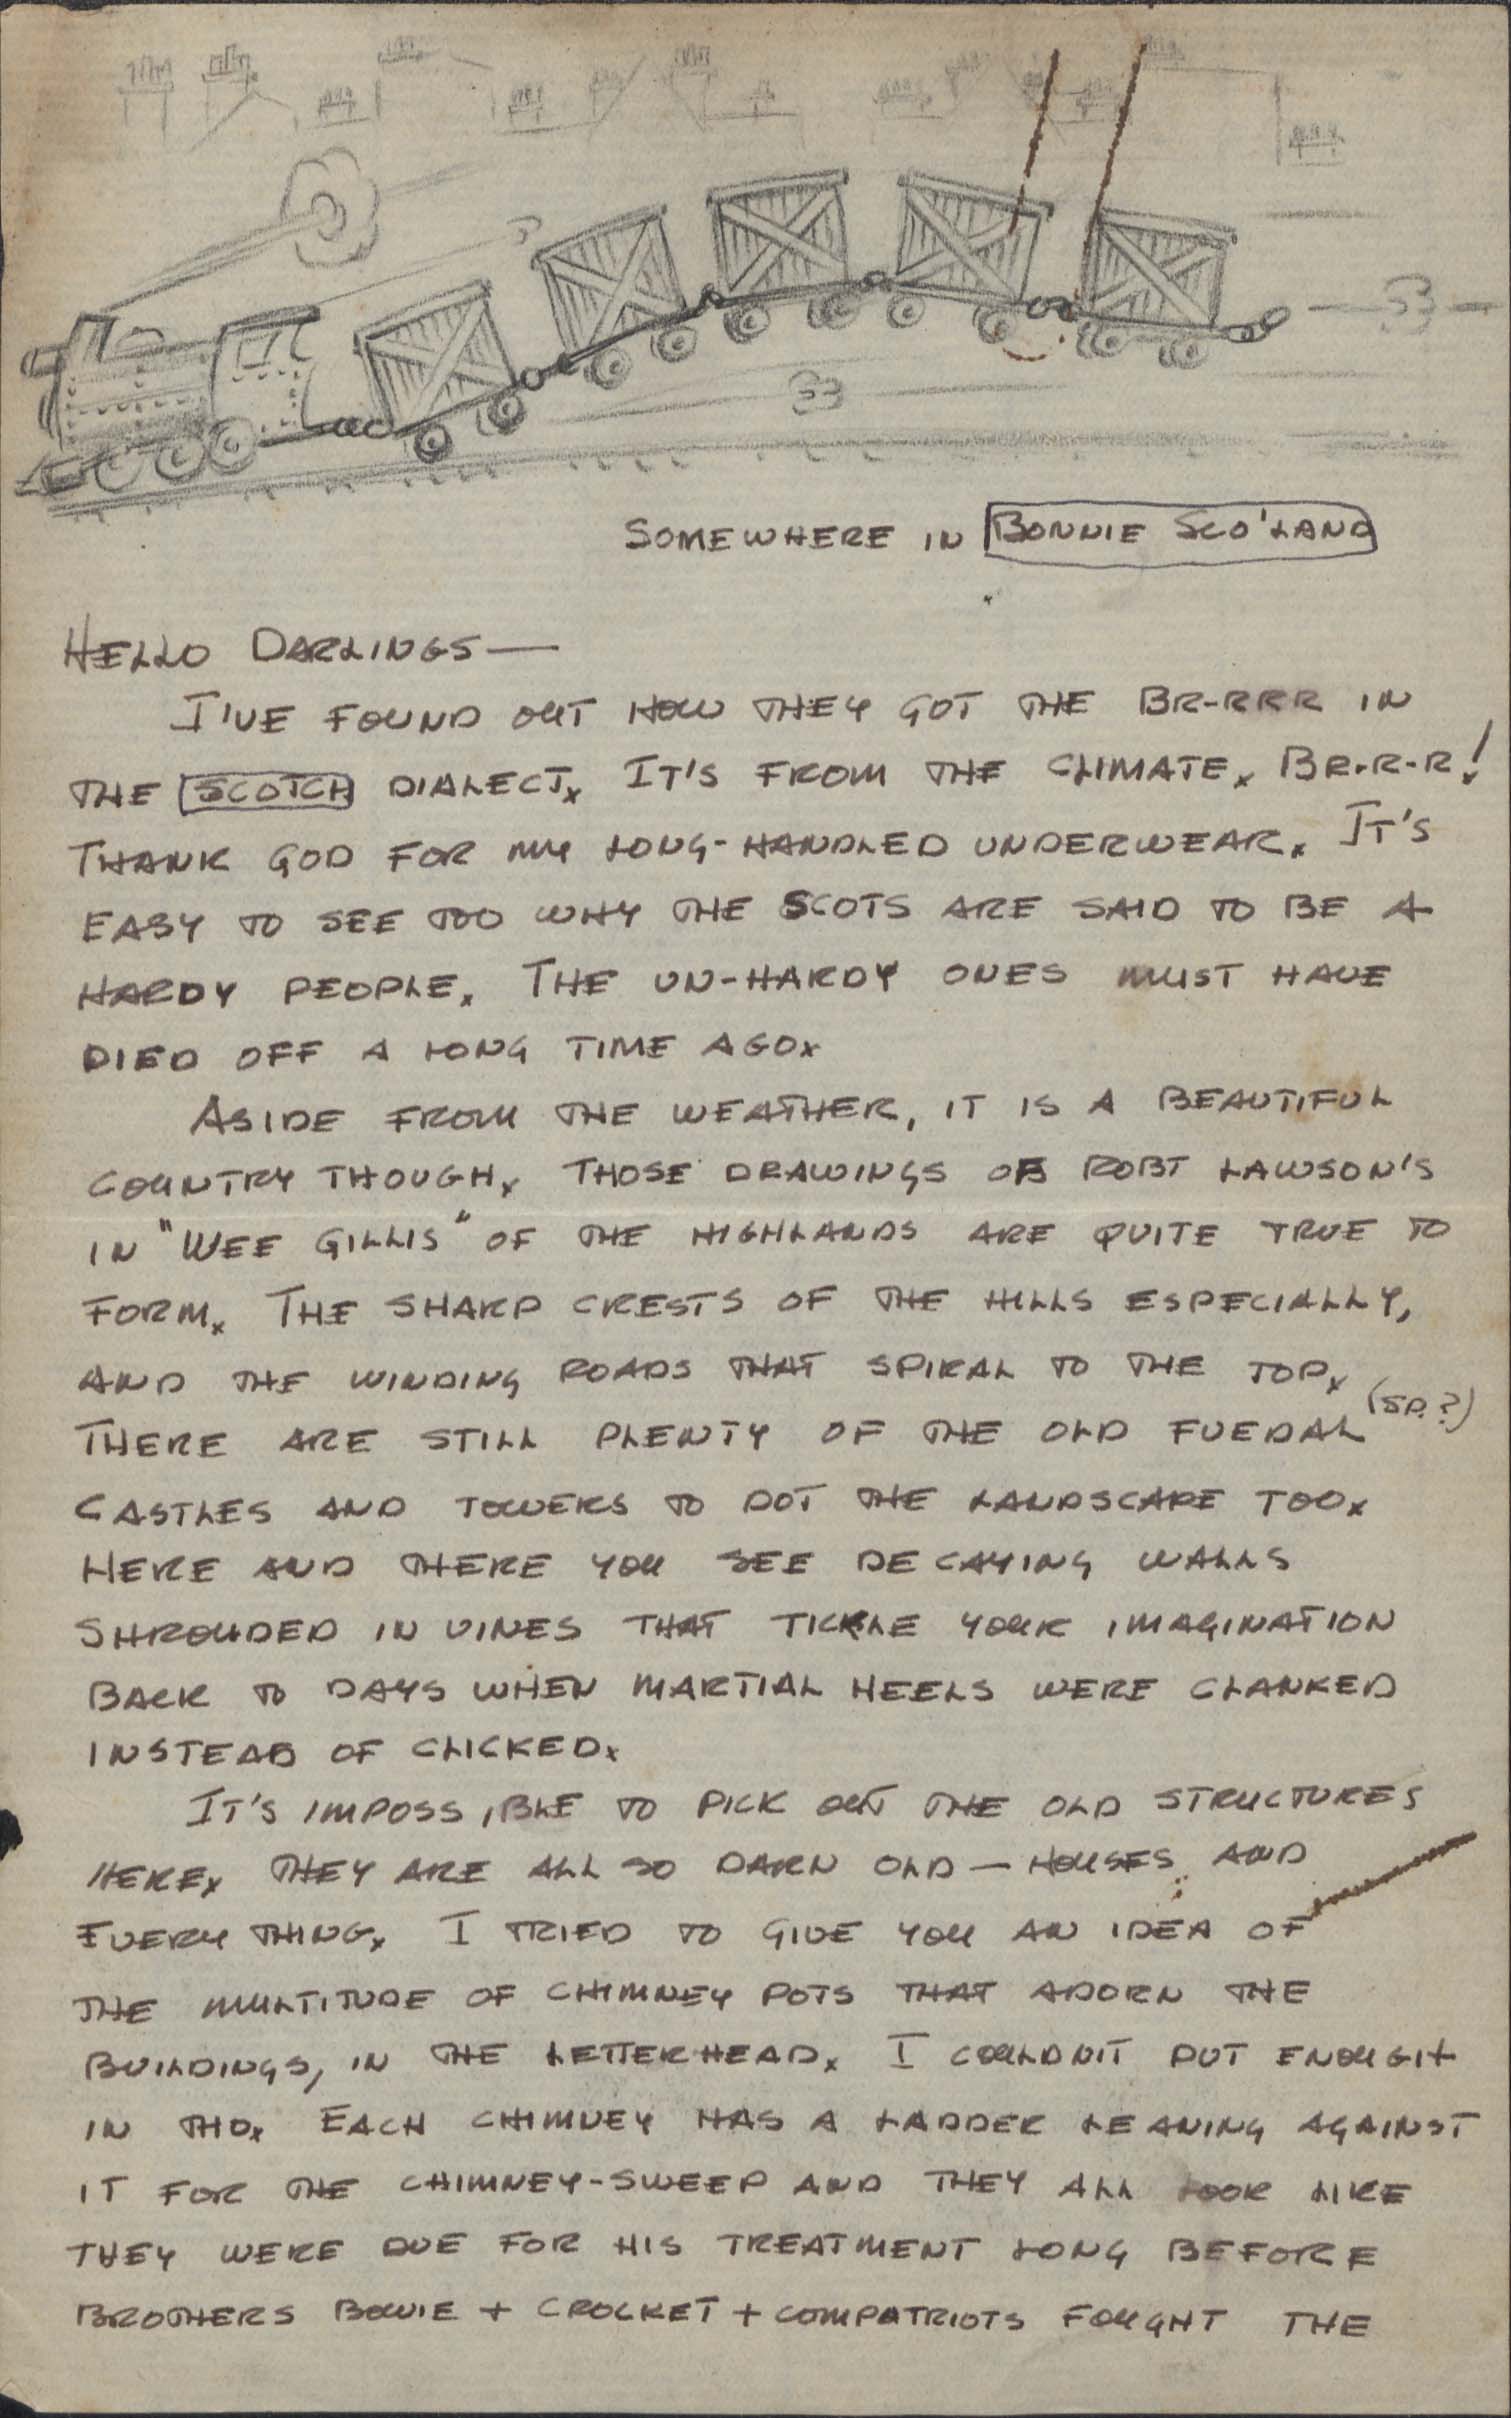 SOMEWHERE IN BONNIE SCO'LAND
HELLO DARLINGS—
I'VE FOUND OUT HOW THEY GOT THE BR-RRR IN
THE SCOTCH DIALECT. IT'S FROM THE CLIMATE. BR-R-R!
THANK GOD FOR MY LONG-HANDLED UNDERWEAR. IT'S
EASY TO SEE TOO WHY THE SCOTS ARE SAID TO BE A
HARDY PEOPLE. THE UN-HARDY ONES MUST HAVE
DIED OFF A LONG TIME AGO.
ASIDE FROM THE WEATHER, IT IS A BEAUTIFUL
COUNTRY THOUGH. THOSE DRAWINGS OF ROBT LAWSON'S
IN "WEE GILLIS" OF THE HIGHLANDS ARE QUITE TRUE TO
FORM. THE SHARP CRESTS OF THE HILLS ESPECIALLY,
AND THE WINDING ROADS THAT SPIRAL TO THE TOP.
THERE ARE STILL PLENTY OF THE OLD FUEDAL (SP.?)
CASTLES AND TOWERS TO DOT THE LANDSCAPE TOO.
HERE AND THERE YOU SEE DECAYING WALLS
SHROUDED IN VINES THAT TICKLE YOUR IMAGINATION
BACK TO DAYS WHEN MARTIAL HEELS WERE CLANKED
INSTEAD OF CLICKED.
IT'S IMPOSSIBLE TO PICK OUT THE OLD STRUCTURES
HERE. THEY ARE ALL SO DARN OLD — HOUSES AND
EVERY THING. I TRIED TO GIVE YOU AN IDEA OF
THE MULTITUDE OF CHIMNEY POTS THAT ADORN THE
BUILDINGS, IN THE LETTERHEAD. I COULDN'T PUT ENOUGH
IN THO. EACH CHIMNEY HAS A LADDER LEANING AGAINST
IT FOR THE CHIMNEY-SWEEP AND THEY ALL LOOK LIKE
THEY WERE DUE FOR HIS TREATMENT LONG BEFORE
BROTHERS BOWIE + CROCKET + COMPATRIOTS FOUGHT THE